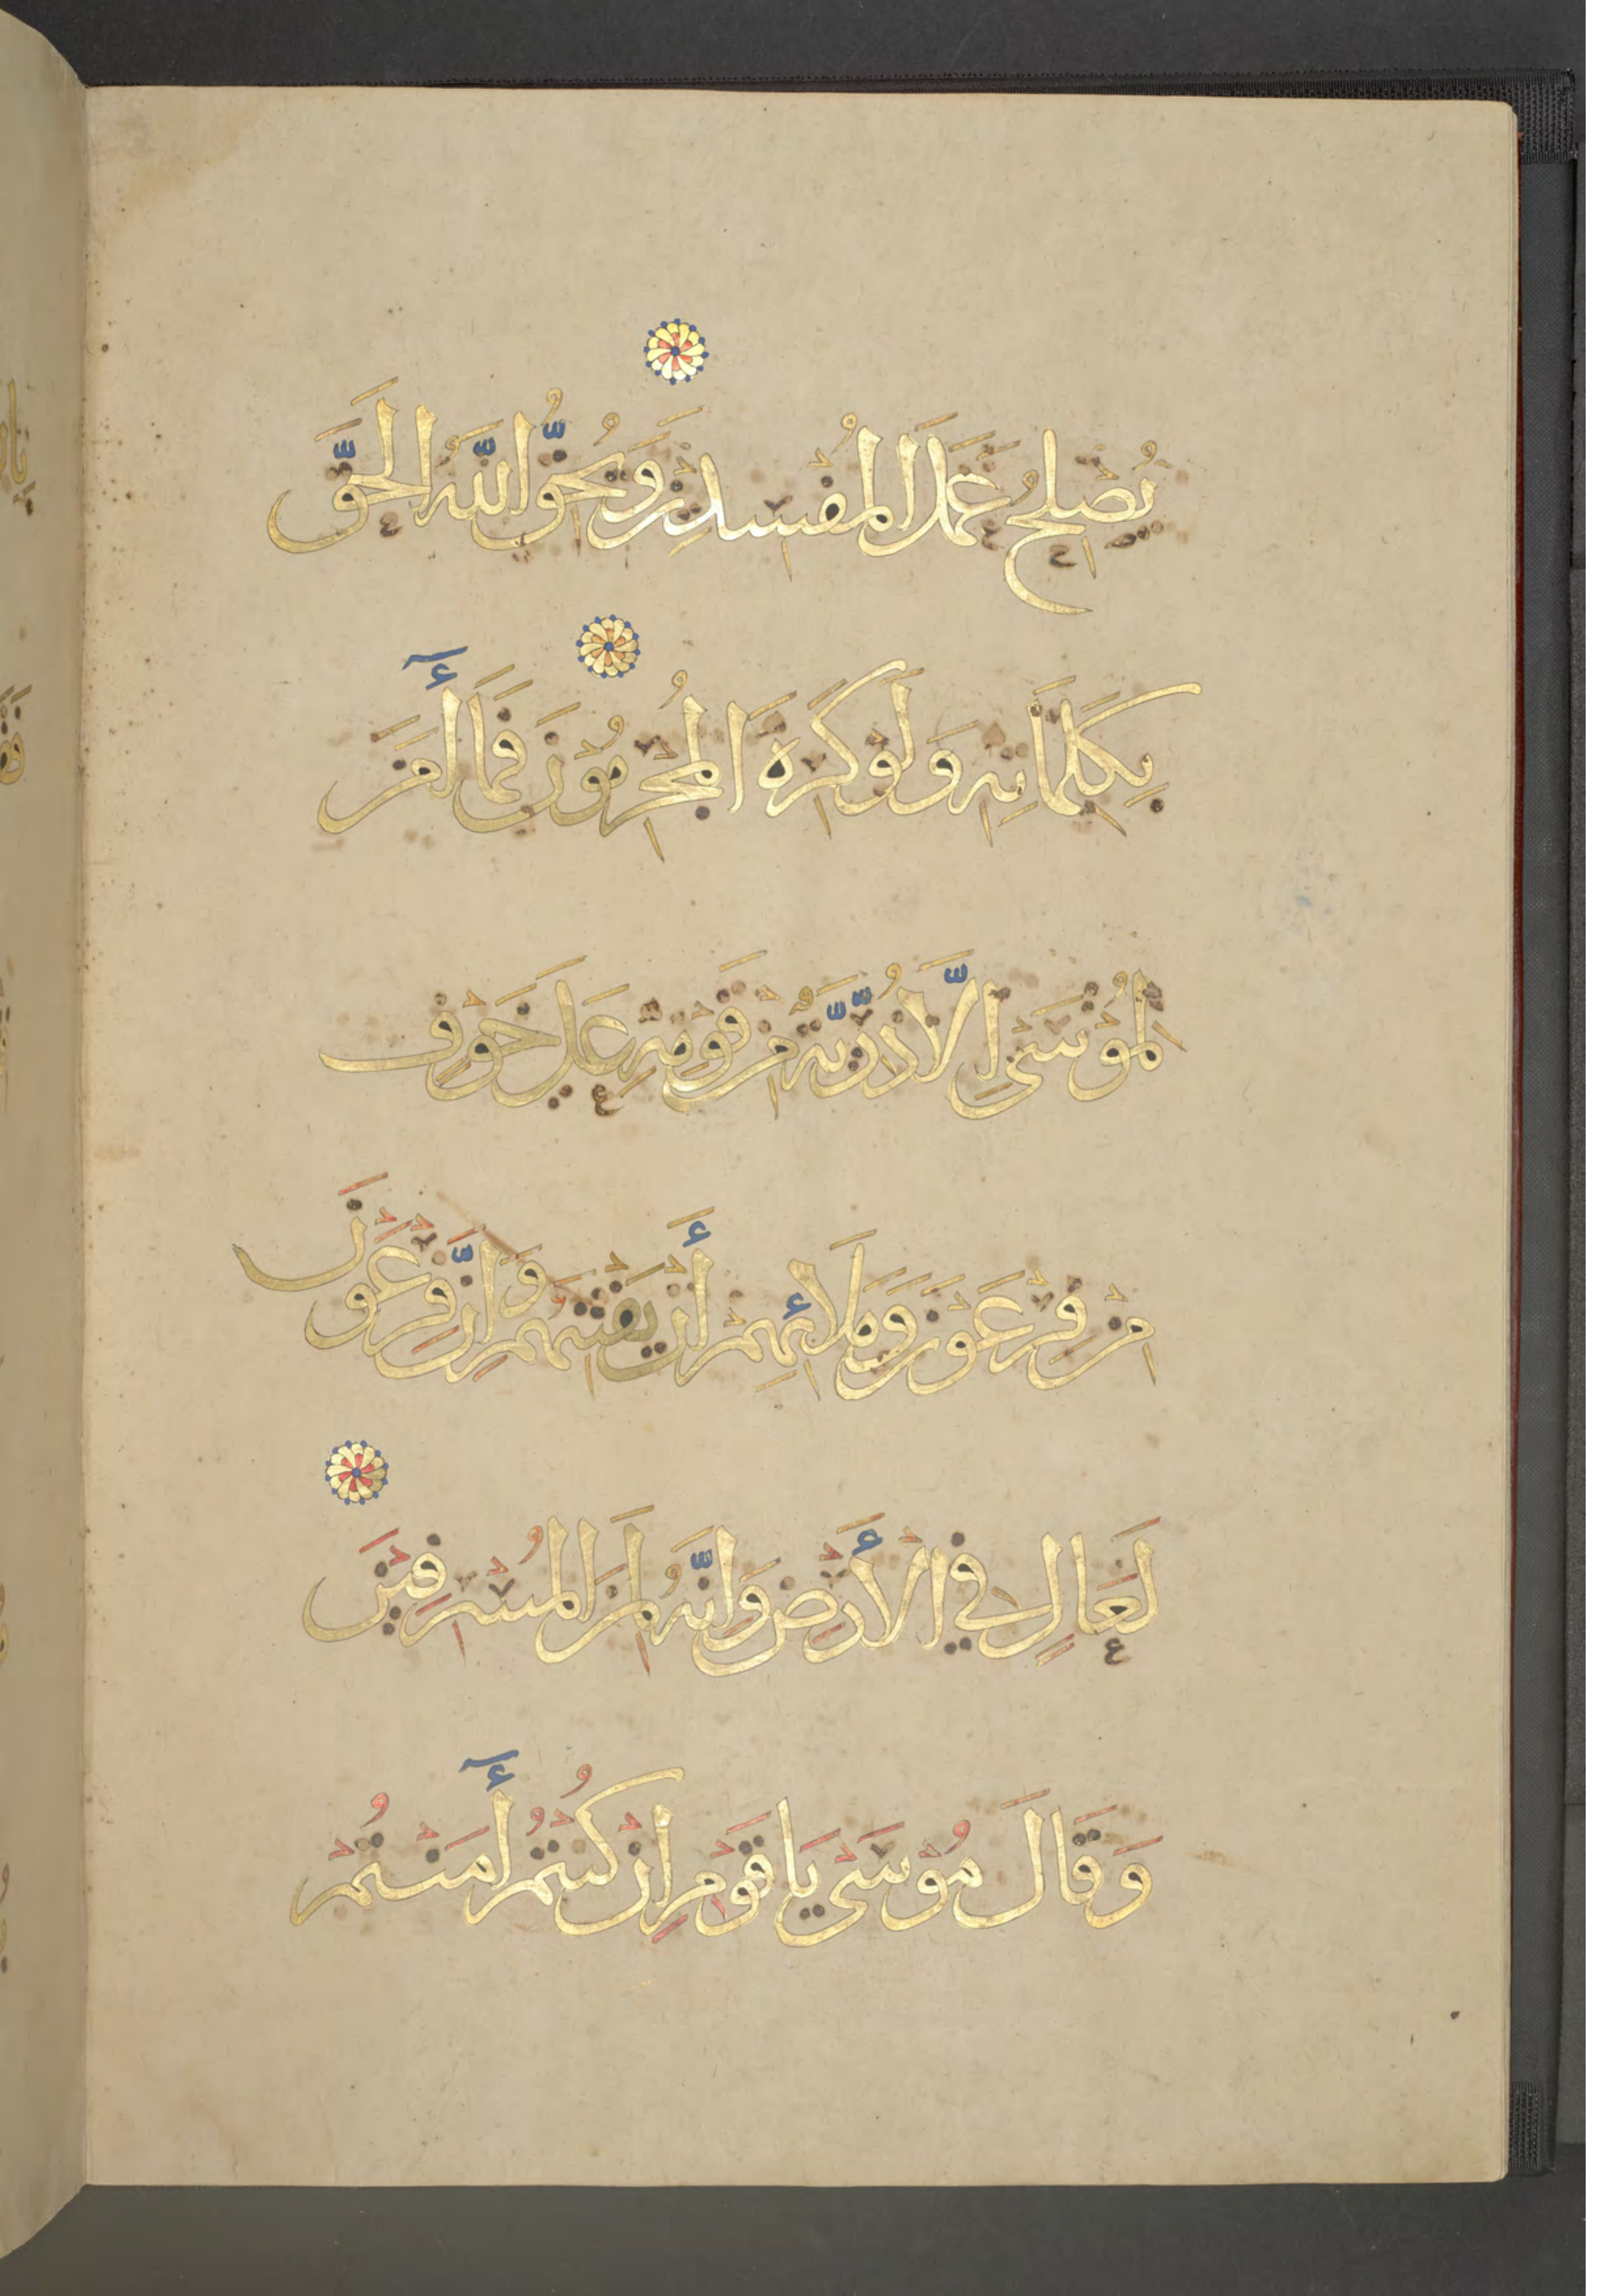 يُصْلِحُ عَمَلَ الْمُفْسِدِينَ وَيُحِقُّ اللَّهُ الْحَقَّ
بِكَلِمَاتِهِ وَلَوْ كَرِهَ الْمُجْرِمُونَ فَمَا أٓمَنَ
لِمُوْسَىٰ اِلَّا ذُرِّيَّةٌ مِنْ قَوْمِهِ عَلَىٰ خَوْفٍ
مِنْ فِرْعَوْنَ وَمَلَائِهِمْ أَنْ يَفْتِنَهُمْ وَاِنَّ فِرْعَوْنَ
لَعَالٍ فِي الْأَرْضِ وَاِنَّهُ لَمِنَ الْمُسْرِفِيْنَ
وَقَالَ مُوْسَىٰ يَا قَوْمِ اِنْ كُنْتُمْ أٓمَنْتُمْ